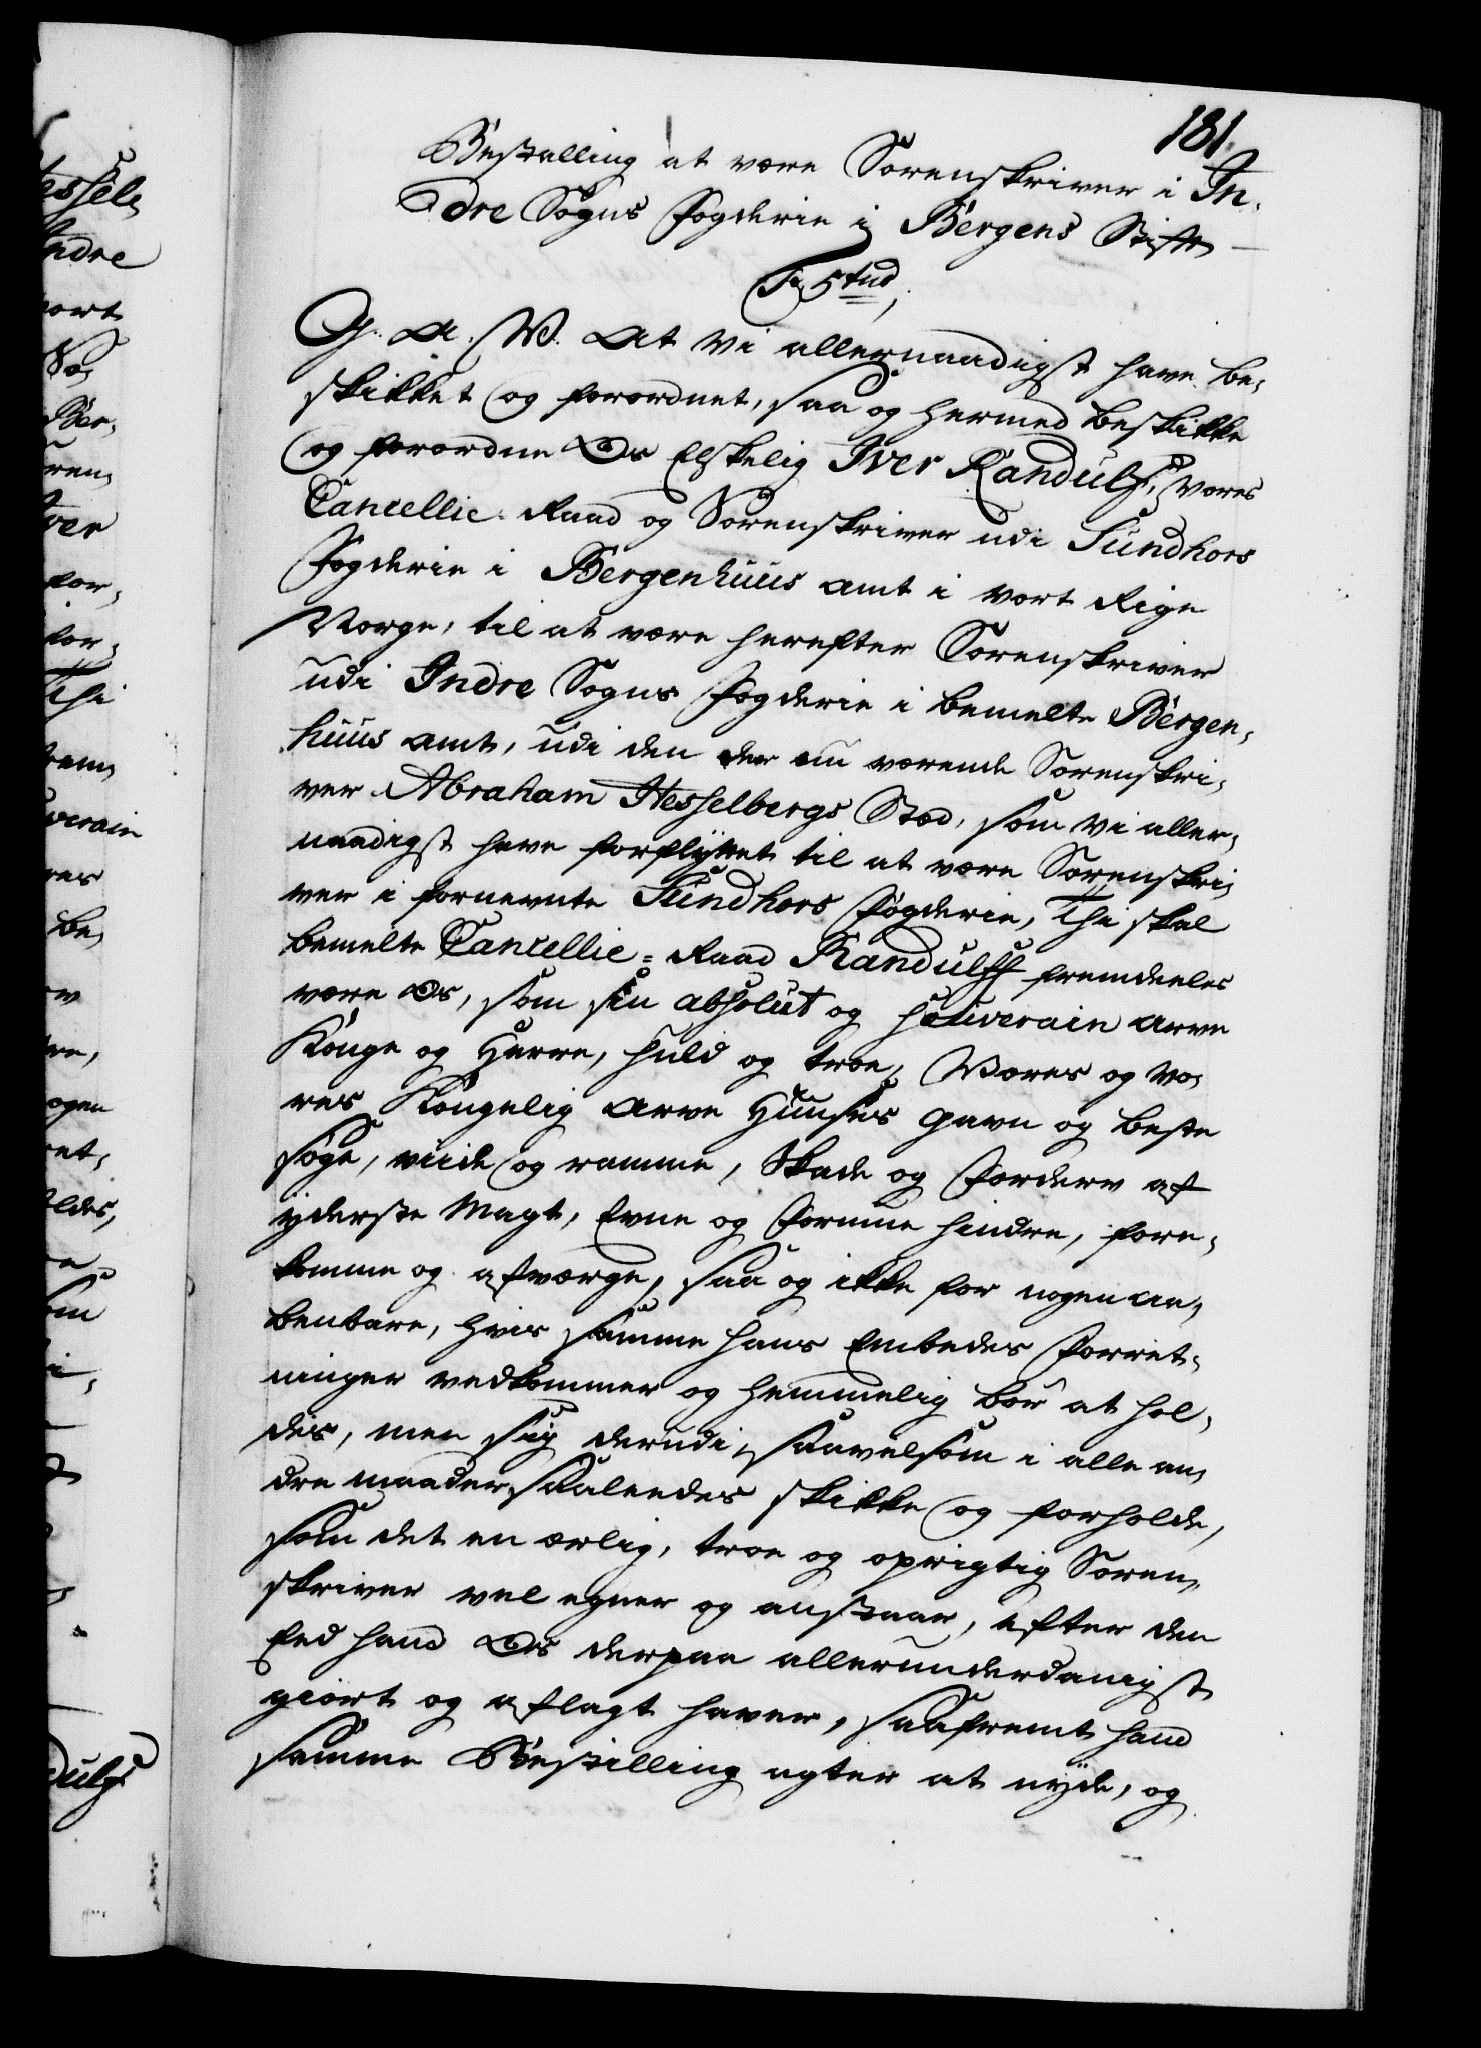 181.
Bestalling at være Sorenskriver i In-
dre Sogns Fogderie i Bergens Stift
G. A. W. At Vi allernaadigst have be-
skikket og forordnet, saa og hermed beskikke
og forordne Os Elskelig Iver Randulff, Vores
Cancellie-Raad og Sorenskriver udi Sundhors
Fogderie i Bergenhuus Amt i vort Rige
Norge, til at være herefter Sorenskriver
udi Indre Sogns Fogderie i bemelte Bergen-
huus Amt, udi den der nu værende Sorenskri-
ver Abraham Hesselbergs Stæd, som Vi aller-
naadigst have forflyttet til at være Sorenskri-
ver i fornevnte Sundhors Fogderie, Thi skal
bemelte Cancellie-Raad Randulff fremdeeles
være Os, som sin absolut og souverain Arve
Konge og Herre, huld og troe, Vores og Vo-
res Kongelig Arve Huuses gavn og beste
søge, viide og ramme, Skade og Forderv af
yderste Magt, Evne og Formue hindre, fore-
komme og afværge, saa og ikke for nogen aa-
benbare, hvis samme hans Embedes Forret-
ninger vedkommer og hemmelig bør at hol-
des, men sig derudi, saavelsom i alle an-
dre maader saaledes skikke og forholde,
som det en ærlig, troe og oprigtig Soren-
skriver vel egner og anstaar, efter den
Eed hand Os derpaa allerunderdanigst
giort og aflagt haver, saafremt hand
samme Bestilling agter at nyde, og